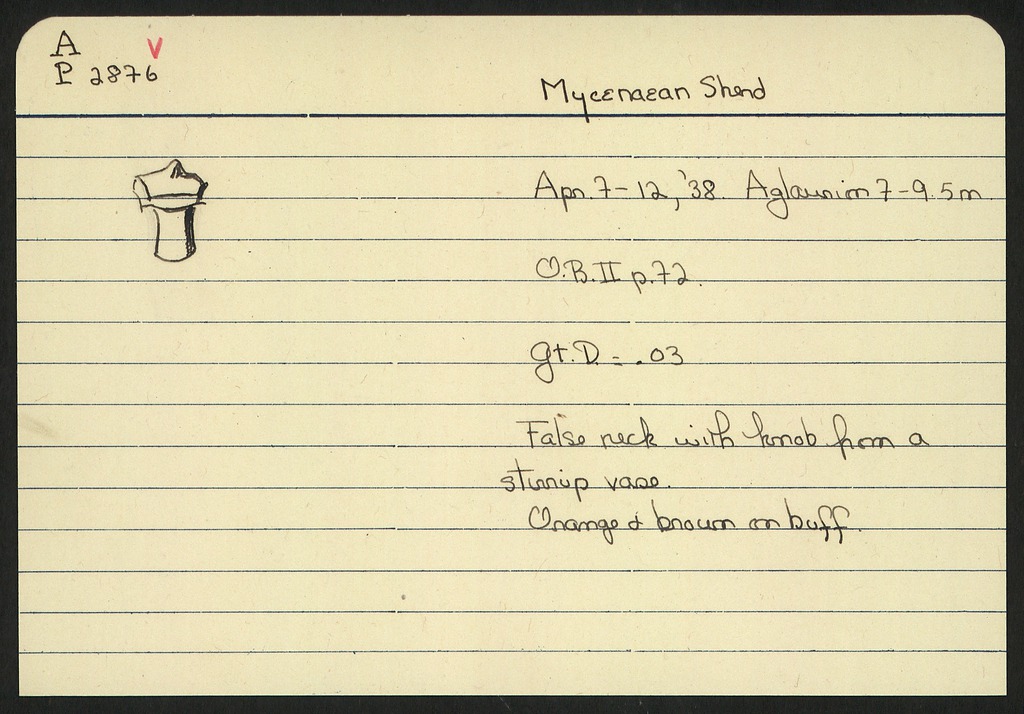 A V
P 2876
Mycenaean Sherd
Apr. 7-12, '38. Aglaurion 7-9.5m.
O.B. II p.72.
gt. D. = .03
False neck with knob from a
stirrup vase.
Orange & brown on buff.